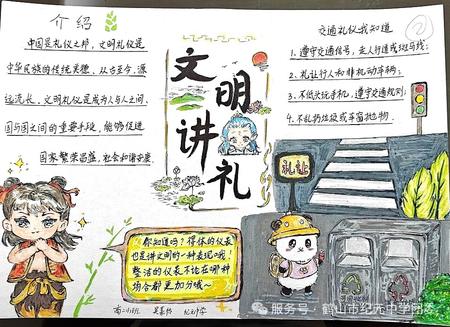 介绍
中国是礼仪之邦，文明礼仪是
中华民族的传统美德，从古至今，源
远流长。文明礼仪是成为人与人之间、
国与国之间的重要手段，能够促进
国家繁荣昌盛，社会和谐安康。
文明讲礼
交通礼仪我知道
②
1、遵守交通信号，走人行道或斑马线；
2、礼让行人和非机动车辆；
3、不低头玩手机，遵守交通规则；
4、不乱扔垃圾或高空抛物。
礼让
你知道吗？得体的仪表
也是讲文明的一种表现哦！
整洁的仪表不论在哪种
场合都更加分哦～
纪元中学
服务号·鹤山市纪元中学团委